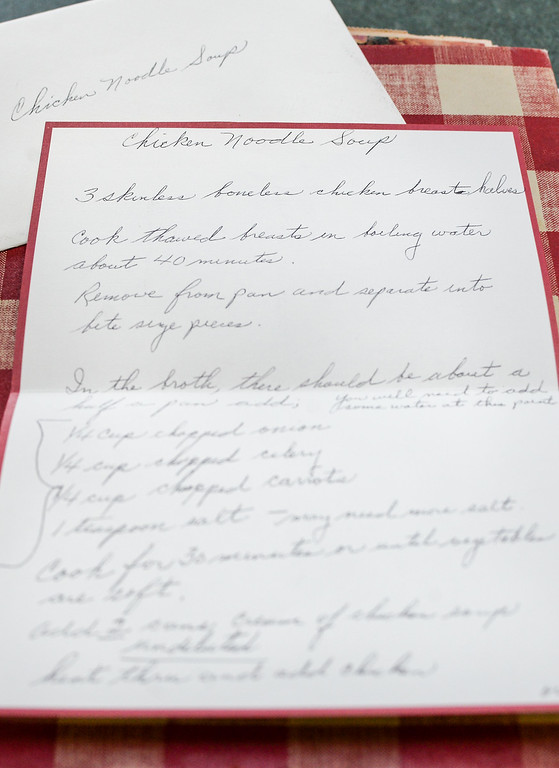 Chicken Noodle Soup
Chicken Noodle Soup
3 skinless boneless chicken breasts halves
Cook thawed breasts in boiling water
about 40 minutes.
Remove from pan and separate into
bite size pieces.
In the broth, there should be about a
half a pan add; you will need to add
some water at this point
1/4 cup chopped onion
1/4 cup chopped celery
1/4 cup chopped carrots
1 teaspoon salt - may need more salt.
Cook for 30 minutes or until vegetables
are soft.
add 2 cans cream of chicken soup
undiluted
heat thru and add chicken